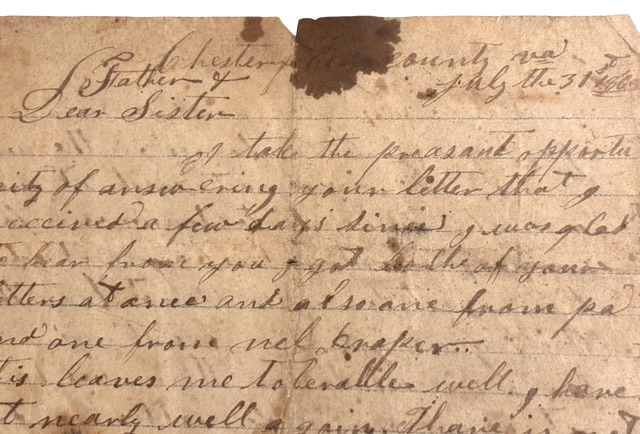 Chesterfield county va
July the 31st
Father &
Dear Sister
I take the preasant opportu
nity of answering your letter that I
received a few days since I was glad
to hear from you I got both of your
letters at once and also one from pa
and one from nel Draper..
this leaves me tolerable well I have
got nearly well again. Thare is not